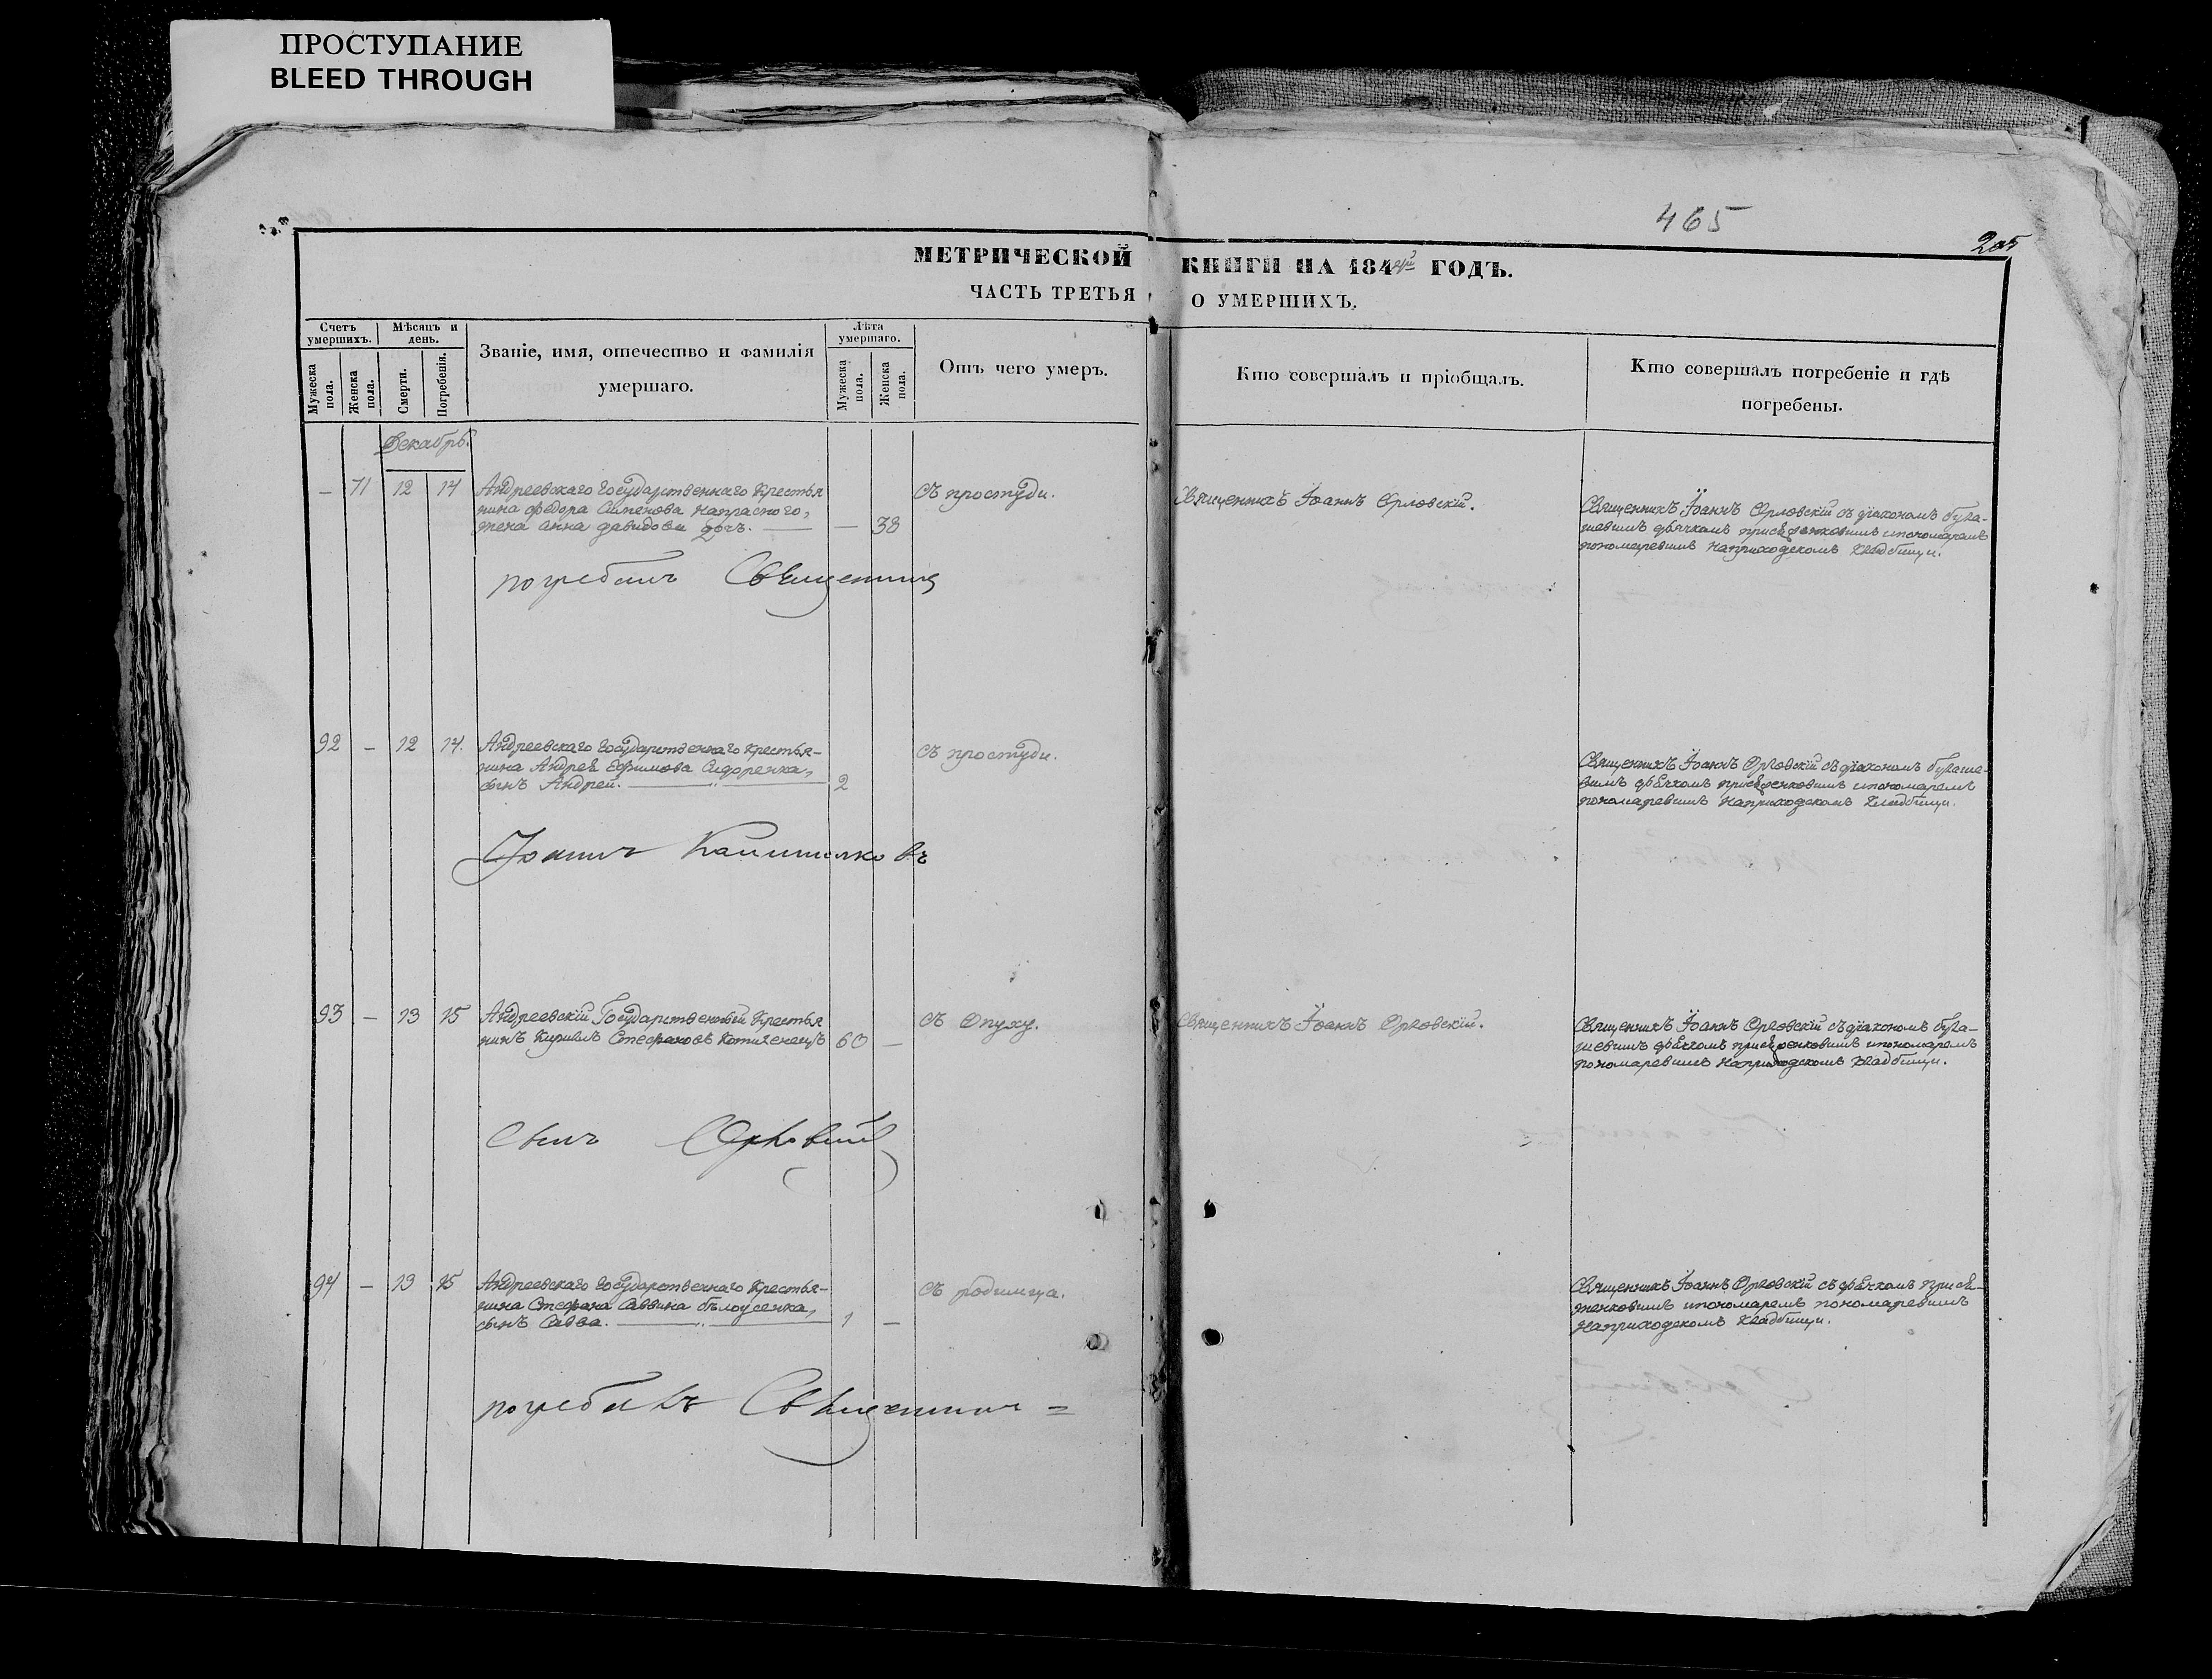 ПРОСТУПАНИЕ
BLEED THROUGH
465
205
МЕТРИЧЕСКОЙ КНИГИ НА 184 ГОДЪ.
ЧАСТЬ ТРЕТЬЯ О УМЕРШИХЪ.
Счетъ умершихъ.
Мужеска пола.
Женска пола.
Мѣсяцъ и день.
Смерти.
Погребенія.
Званіе, имя, отечество и фамилія
умершаго.
Лѣта умершаго.
Мужеска пола.
Женска пола.
Отъ чего умеръ.
Кто совершалъ и пріобщалъ.
Кто совершалъ погребеніе и гдѣ
погребены.
Декабрь.
— 71 12 14 Андреевскаго Государственнаго Крестья
нина Федора Симеонова Напрасного,
жена Анна Давидова дочь. — 38
Съ простуди.
Священникъ Іоаннъ Орловскій.
Священникъ Іоаннъ Орловскій съ діакономъ
дьячкомъ пономаремъ
пономаревимъ наприходскомъ кладбищи.
погребалъ Священникъ
92 — 12 14. Андреевскаго Государственнаго Крестья-
нина Андрея Ефимова Сидоренка,
сынъ Андрей. 2
Съ простуди.
Священникъ Іоаннъ Орловскій съ діакономъ
дьячкомъ ипономаремъ
пономаревимъ наприходскомъ кладбищи.
Іоаннъ
93 — 13 15 Андреевскій Государственный Крестья
нинъ Кирилъ Стефановъ 60 —
Съ Опуху.
Священникъ Іоаннъ Орловскій.
Священникъ Іоаннъ Орловскій съ діакономъ
дьячкомъ ипономаремъ
пономаревимъ наприходскомъ кладбищи.
Орловскій
94 — 13 15 Андреевскаго Государственнаго Крестья-
нина Стефана Саввина Бѣлоусенка,
сынъ Савва. 1 —
Съ родимца.
Священникъ Іоаннъ Орловскій съ дьячкомъ
ипономаремъ пономаревимъ
наприходскомъ кладбищи.
погребалъ Священникъ =